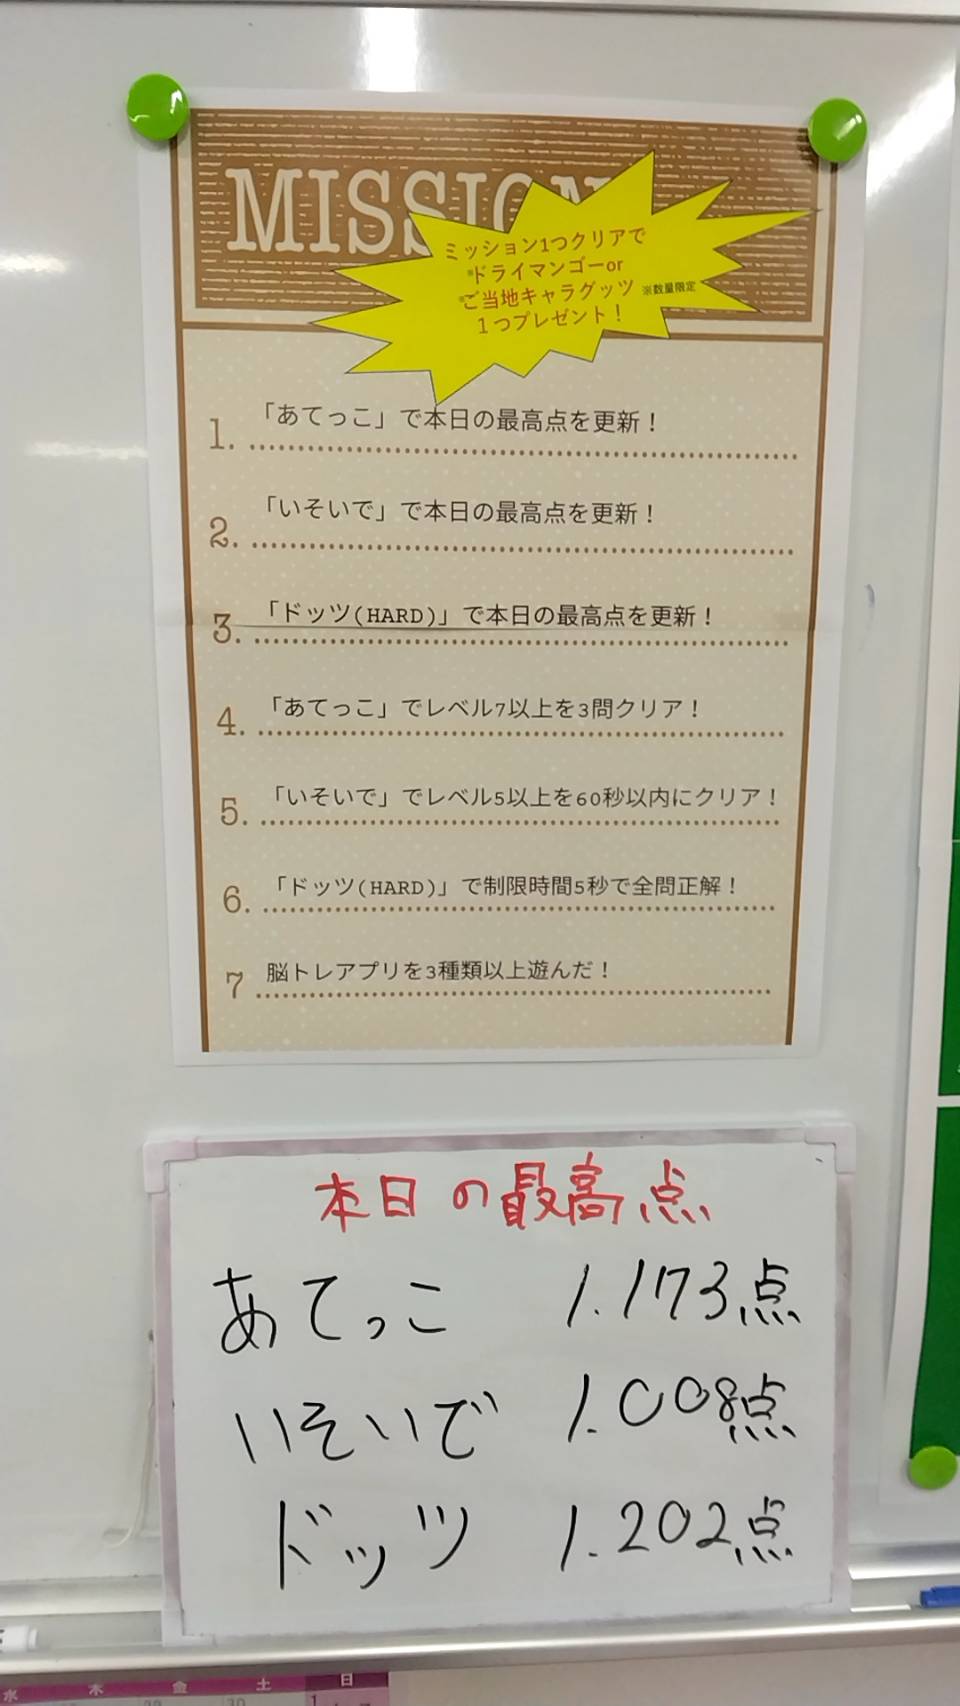 MISSION
ミッション1つクリアで
※ドライマンゴーor
※ご当地キャラグッツ ※数量限定
1つプレゼント！
1. 「あてっこ」で本日の最高点を更新！
2. 「いそいで」で本日の最高点を更新！
3. 「ドッツ(HARD)」で本日の最高点を更新！
4. 「あてっこ」でレベル7以上を3問クリア！
5. 「いそいで」でレベル5以上を60秒以内にクリア！
6. 「ドッツ(HARD)」で制限時間5秒で全問正解！
7 脳トレアプリを3種類以上遊んだ！
本日の最高点
あてっこ 1.173点
いそいで 1.008点
ドッツ 1.202点
水 木 金 土 日